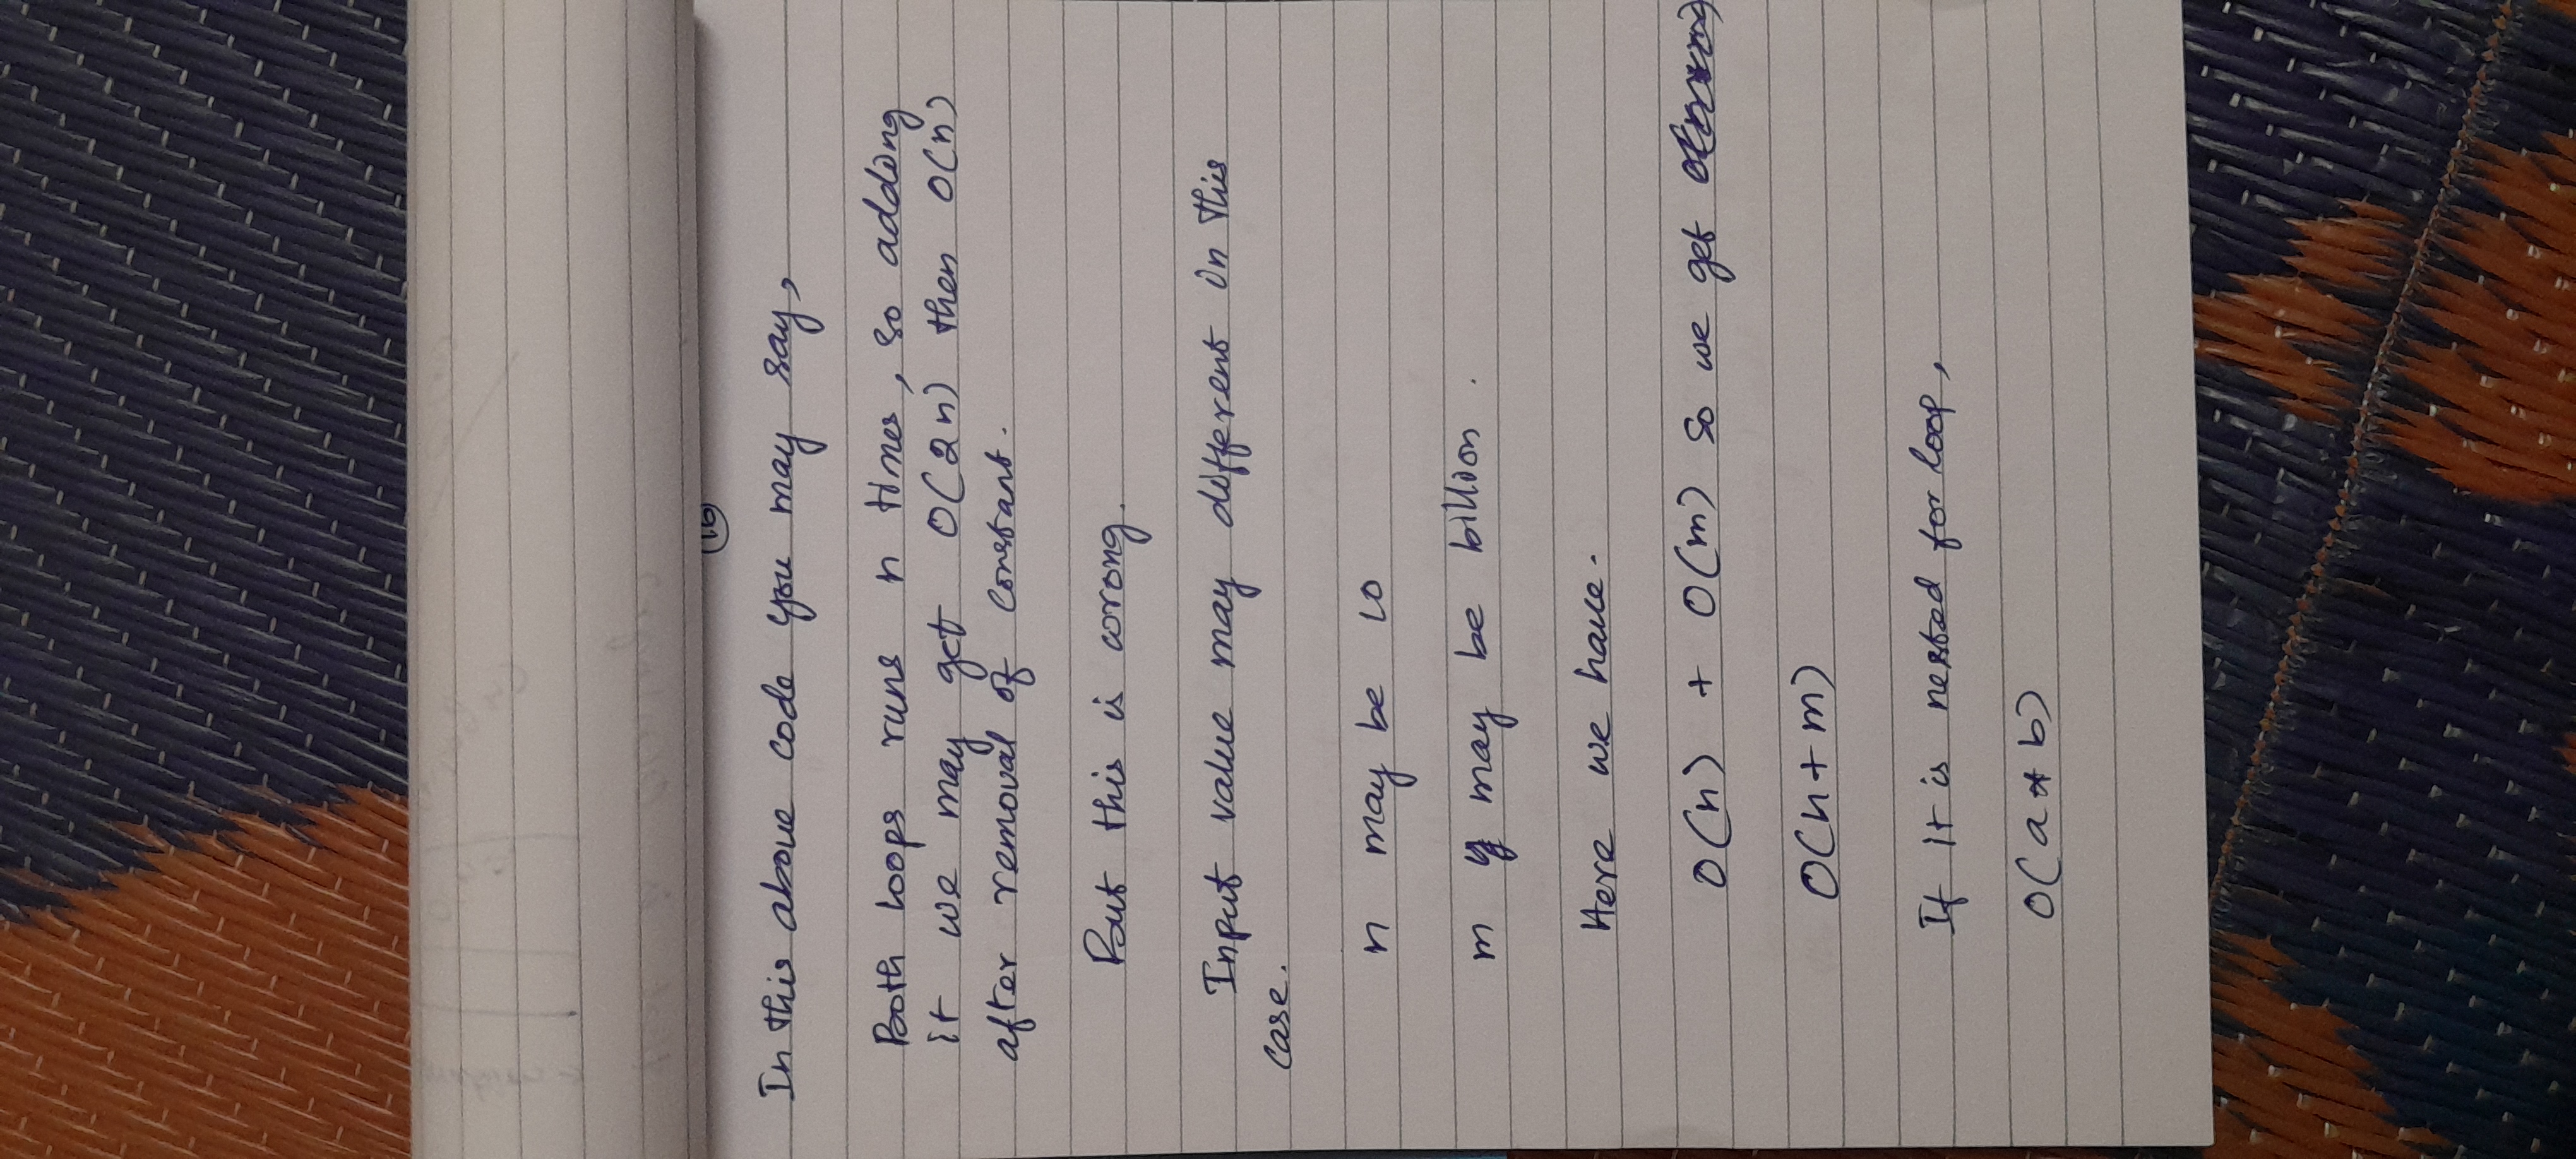 16
In this above code you may say,
Both loops runs n times, so adding
it we may get O(2n) then O(n)
after removal of constant.
But this is wrong.
Input value may different in this
case.
n may be 10
m may be billion.
Here we have.
O(n) + O(m) so we get
O(n+m)
If it is nested for loop,
O(a*b)